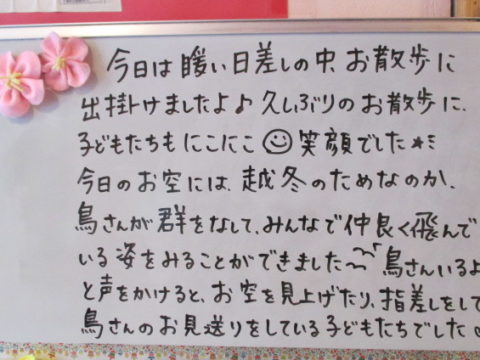 今日は暖い日差しの中、お散歩に
出掛けましたよ♪久しぶりのお散歩に、
子どもたちもにこにこ☺笑顔でした★ミ
今日のお空には、越冬のためなのか、
鳥さんが群をなして、みんなで仲良く飛んで
いる姿をみることができました〜 鳥さんいるよ
と声をかけると、お空を見上げたり、指差しをして
鳥さんのお見送りをしている子どもたちでした♡